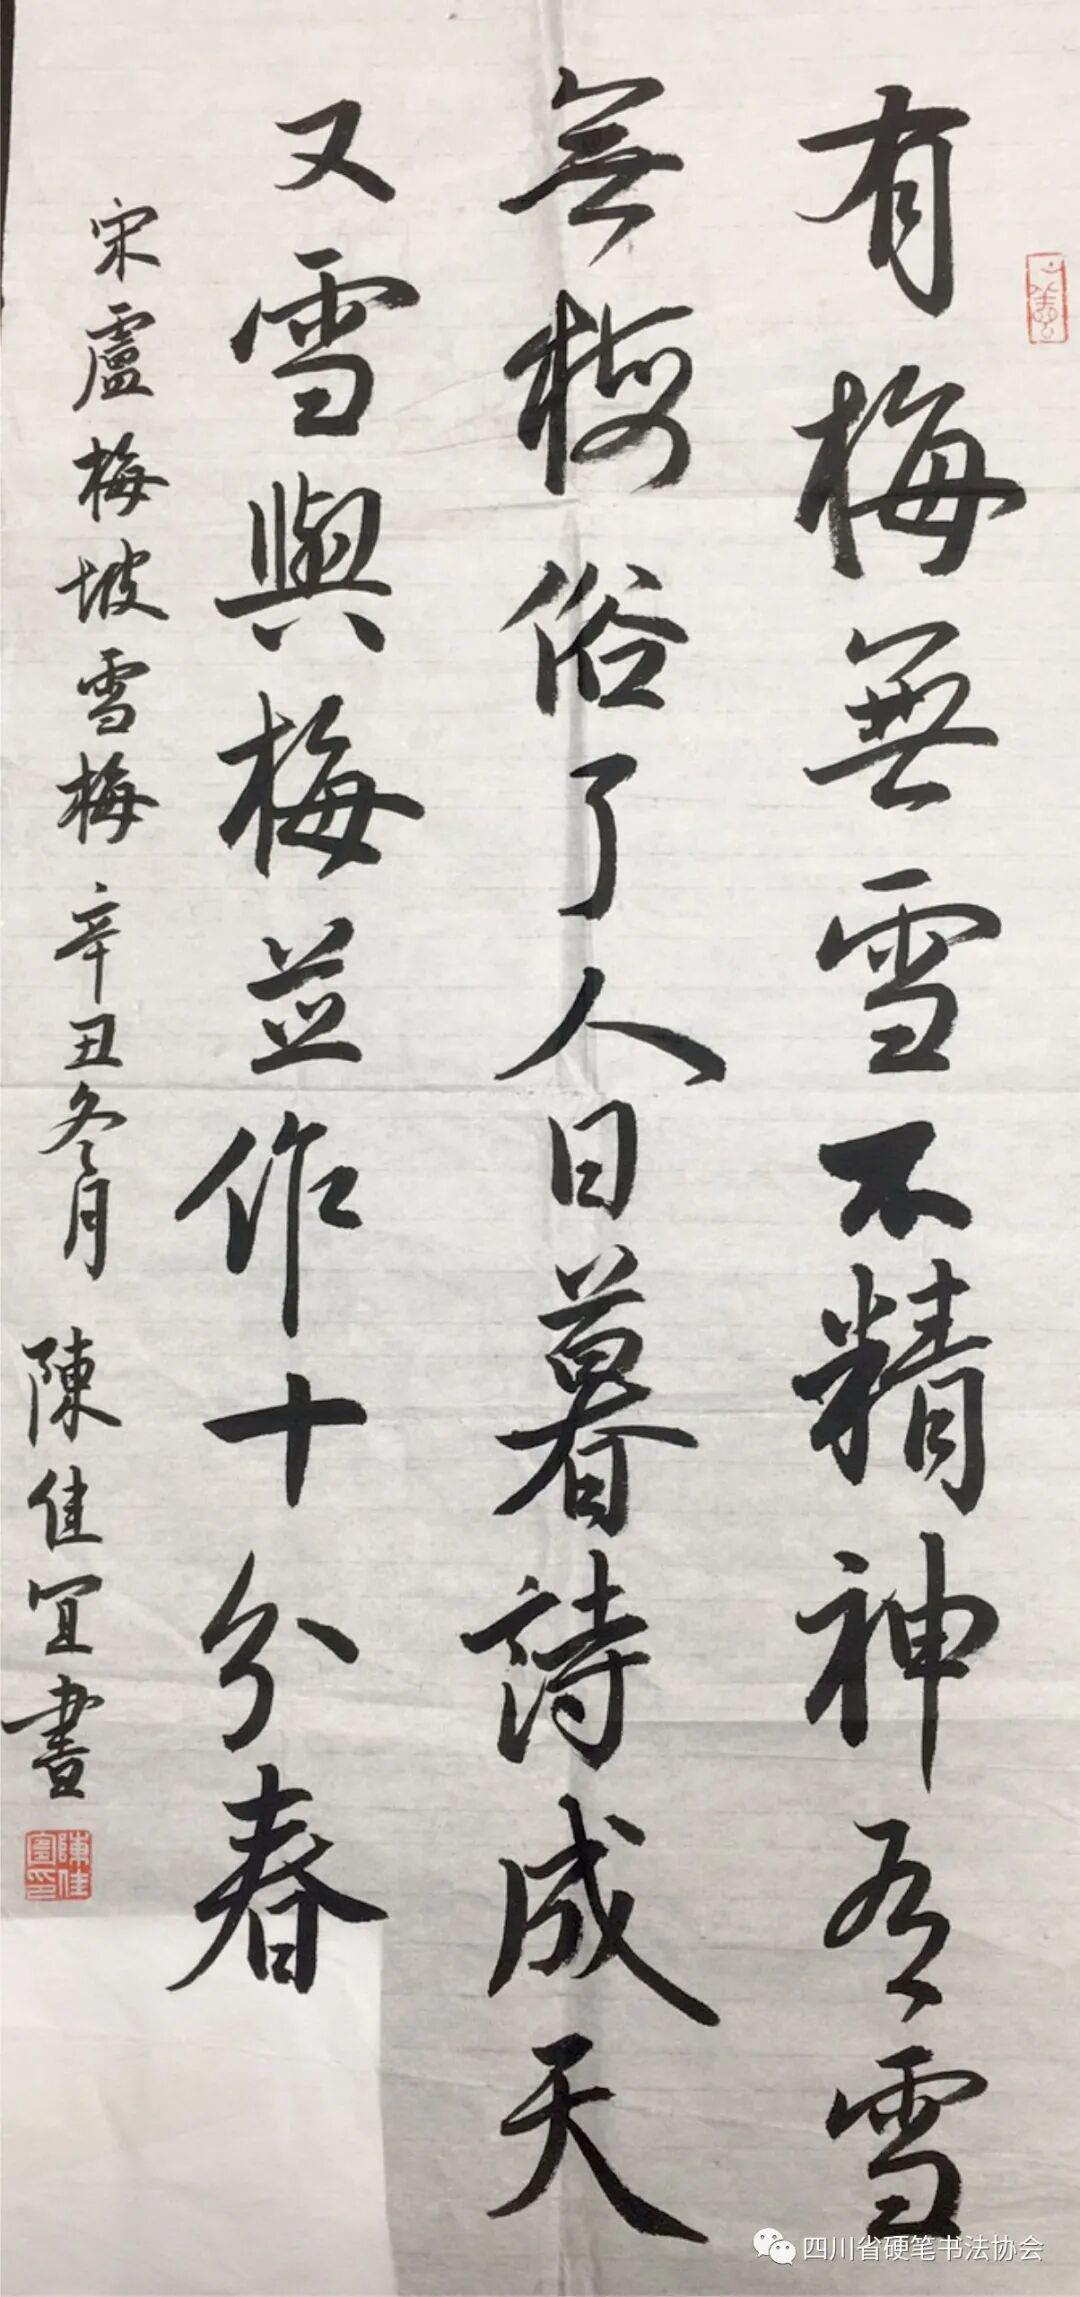 有梅無雪不精神有雪
無梅俗了人日暮詩成天
又雪與梅並作十分春
宋盧梅坡雪梅辛丑冬月 陳佳宜書
陳佳宜印
四川省硬笔书法协会